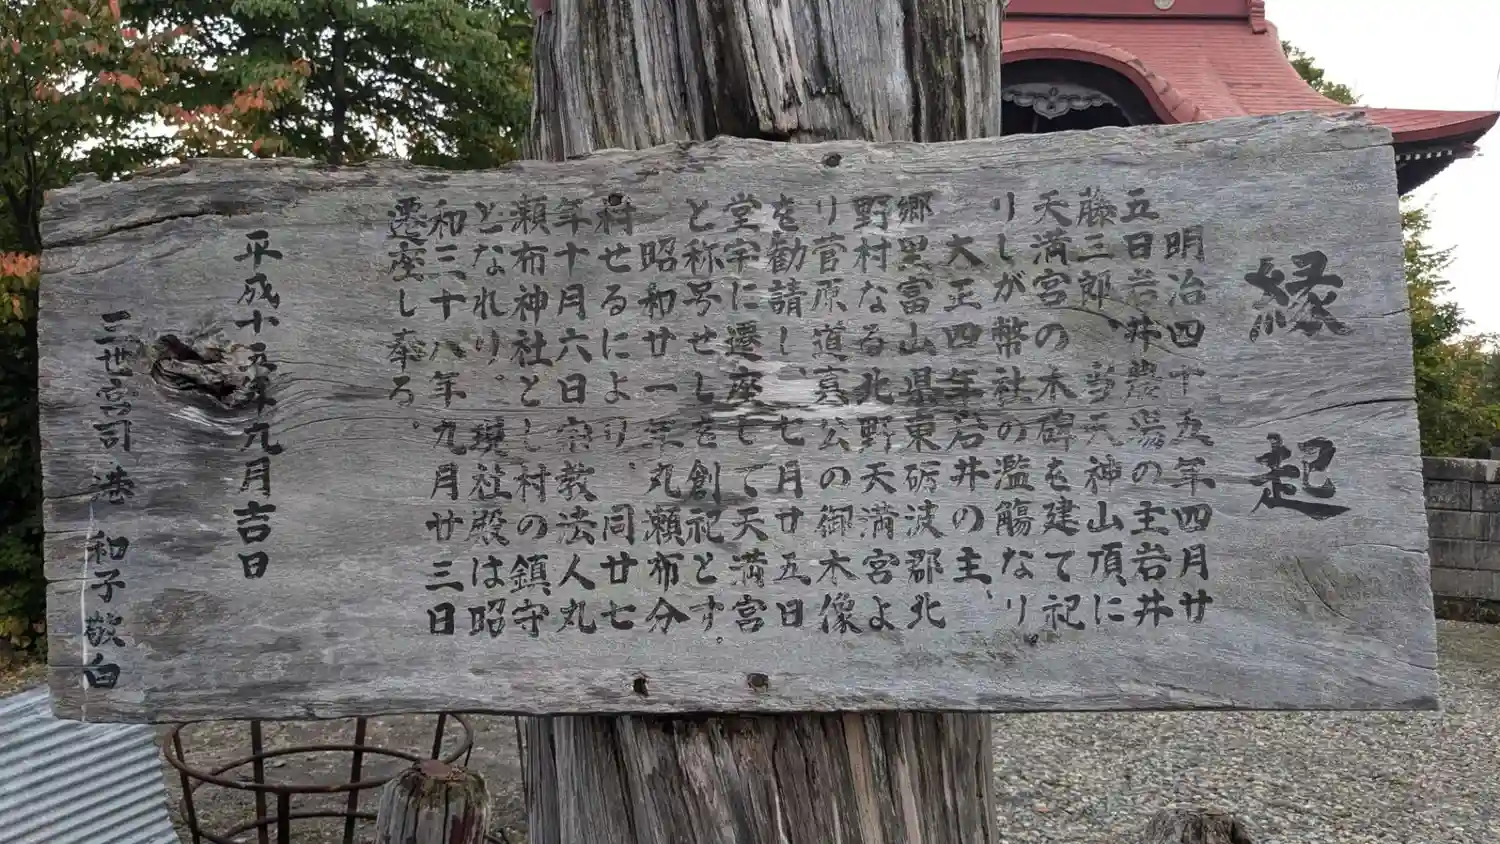 縁起
明治四十五年四月廿
五日岩井農場の主岩井
藤三郎、当天神山頂に
天満宮の木碑を建て祀
りしが幣社の濫觴なり。
大正四年岩井の主、
郷里富山県東砺波郡北
野村なる北野天満宮よ
り菅原道真公の御木像
を勧請し、七月廿五日
堂宇に遷座して天満宮
と称号せしを創祀とす。
昭和廿一年丸瀬布分
村せるにより、同廿七
年十月六日宗教法人丸
瀬布神社とし村の鎮守
となれり。現社殿は昭
和三十八年九月廿三日
遷座し奉る。
平成十五年九月吉日
三世宮司 港 和子敬白